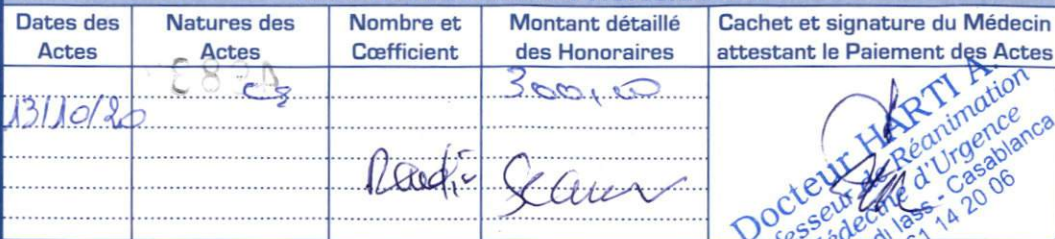 Dates des Actes
Natures des Actes
Nombre et Cœfficient
Montant détaillé des Honoraires
Cachet et signature du Médecin attestant le Paiement des Actes
300,00
13/10/20
Radio Scanner
Docteur HARTI A.
Professeur de Réanimation
Médecine d'Urgence
Casablanca
14 20 06